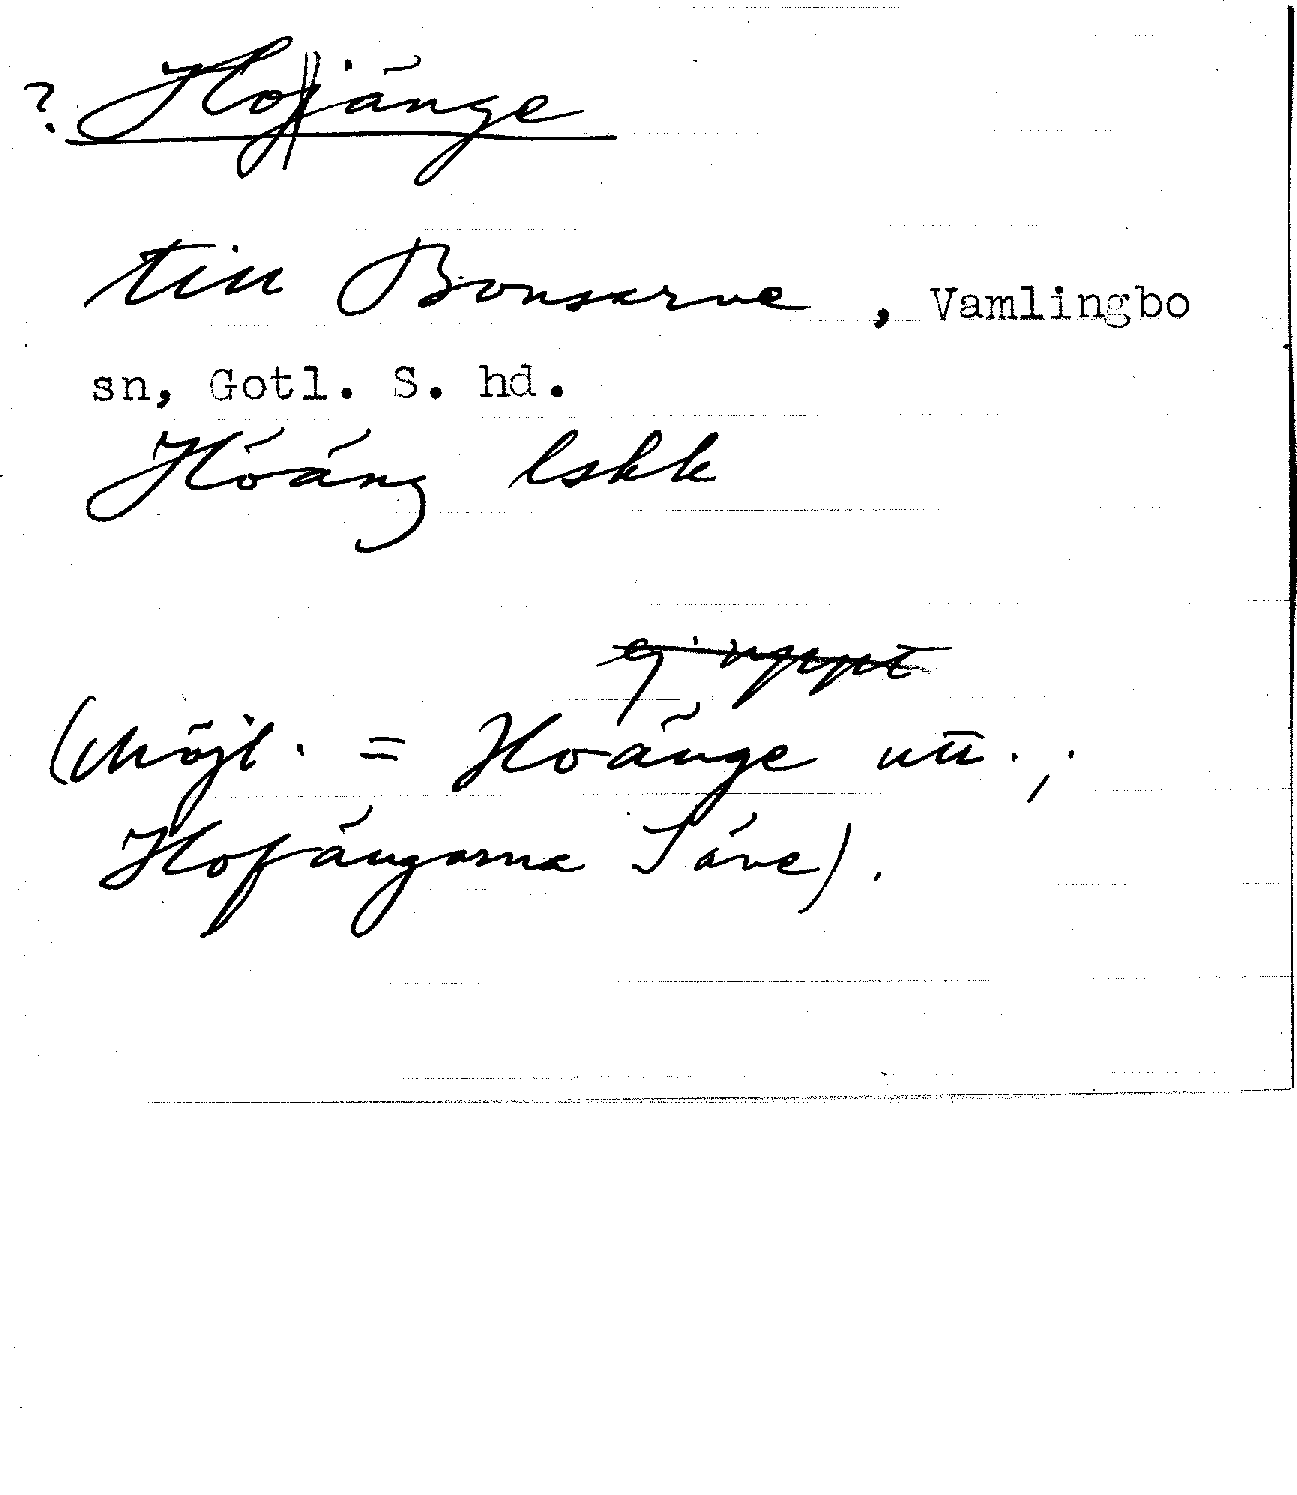 ? Hoänge
till Bonsarve, Vamlingbo
sn, Gotl. S. hd.
Hóáng lskk
ej uppt
(Möjl. = Hoänge utt.;
Hofängarna Säve).